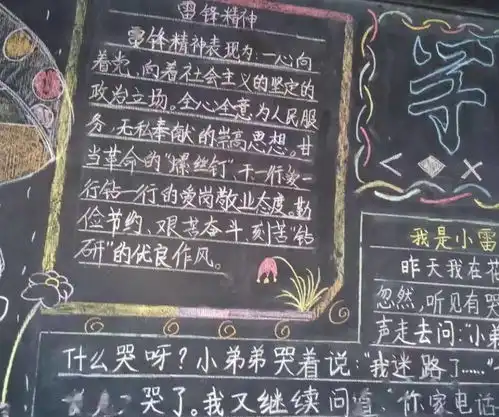 雷锋精神
雷锋精神表现为:一心向
着党、向着社会主义的坚定的
政治立场。全心全意为人民服
务,无私奉献的崇高思想。甘
当革命的"螺丝钉",干一行爱一
行钻一行的爱岗敬业态度。勤
俭节约、艰苦奋斗、刻苦"钻
研"的优良作风。
学
我是小雷
昨天我在花
忽然,听见有哭
声走去问:"小弟
什么哭呀?小弟弟哭着说:"我迷路了……"
哭了。我又继续问道,你家电话